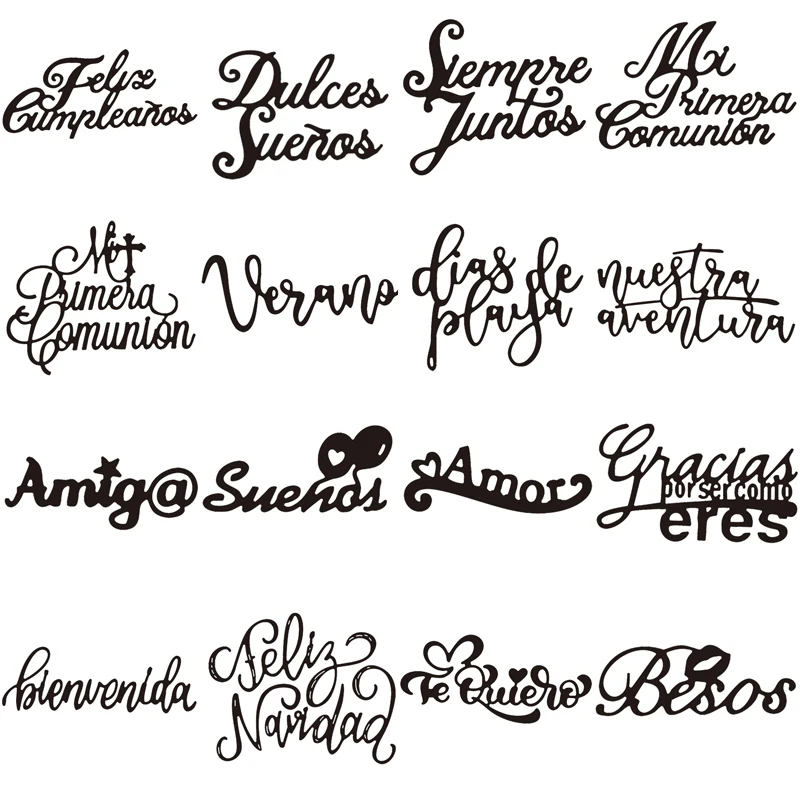 Feliz
Cumpleaños
Dulces
Sueños
Siempre
Juntos
Mi
Primera
Comunión
Mi
Primera
Comunión
Verano
dias de
playa
nuestra
aventura
Amig@
Sueños
Amor
Gracias
por ser como
eres
bienvenida
Feliz
Navidad
Te Quiero
Besos